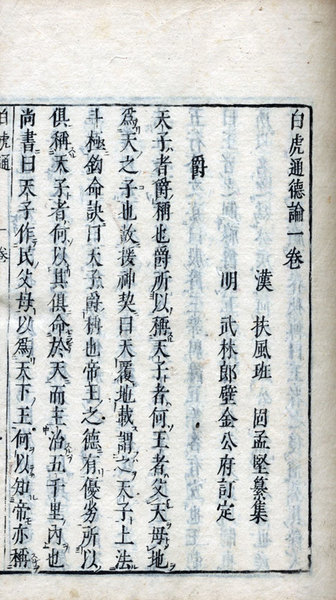 白虎通德論一卷
漢 扶風班 固孟堅纂集
明 武林郎璧金公府訂定
爵
天子者爵稱也爵所以稱天子者何王者父天母地
爲天之子也故援神契曰天覆地載謂之天子上法
斗極鈎命訣曰天子爵稱也帝王之德有優劣所以
俱稱天子者何以其俱命於天而主治五千里內也
尚書曰天子作民父母以爲天下王何以知帝亦稱
白虎通 一卷